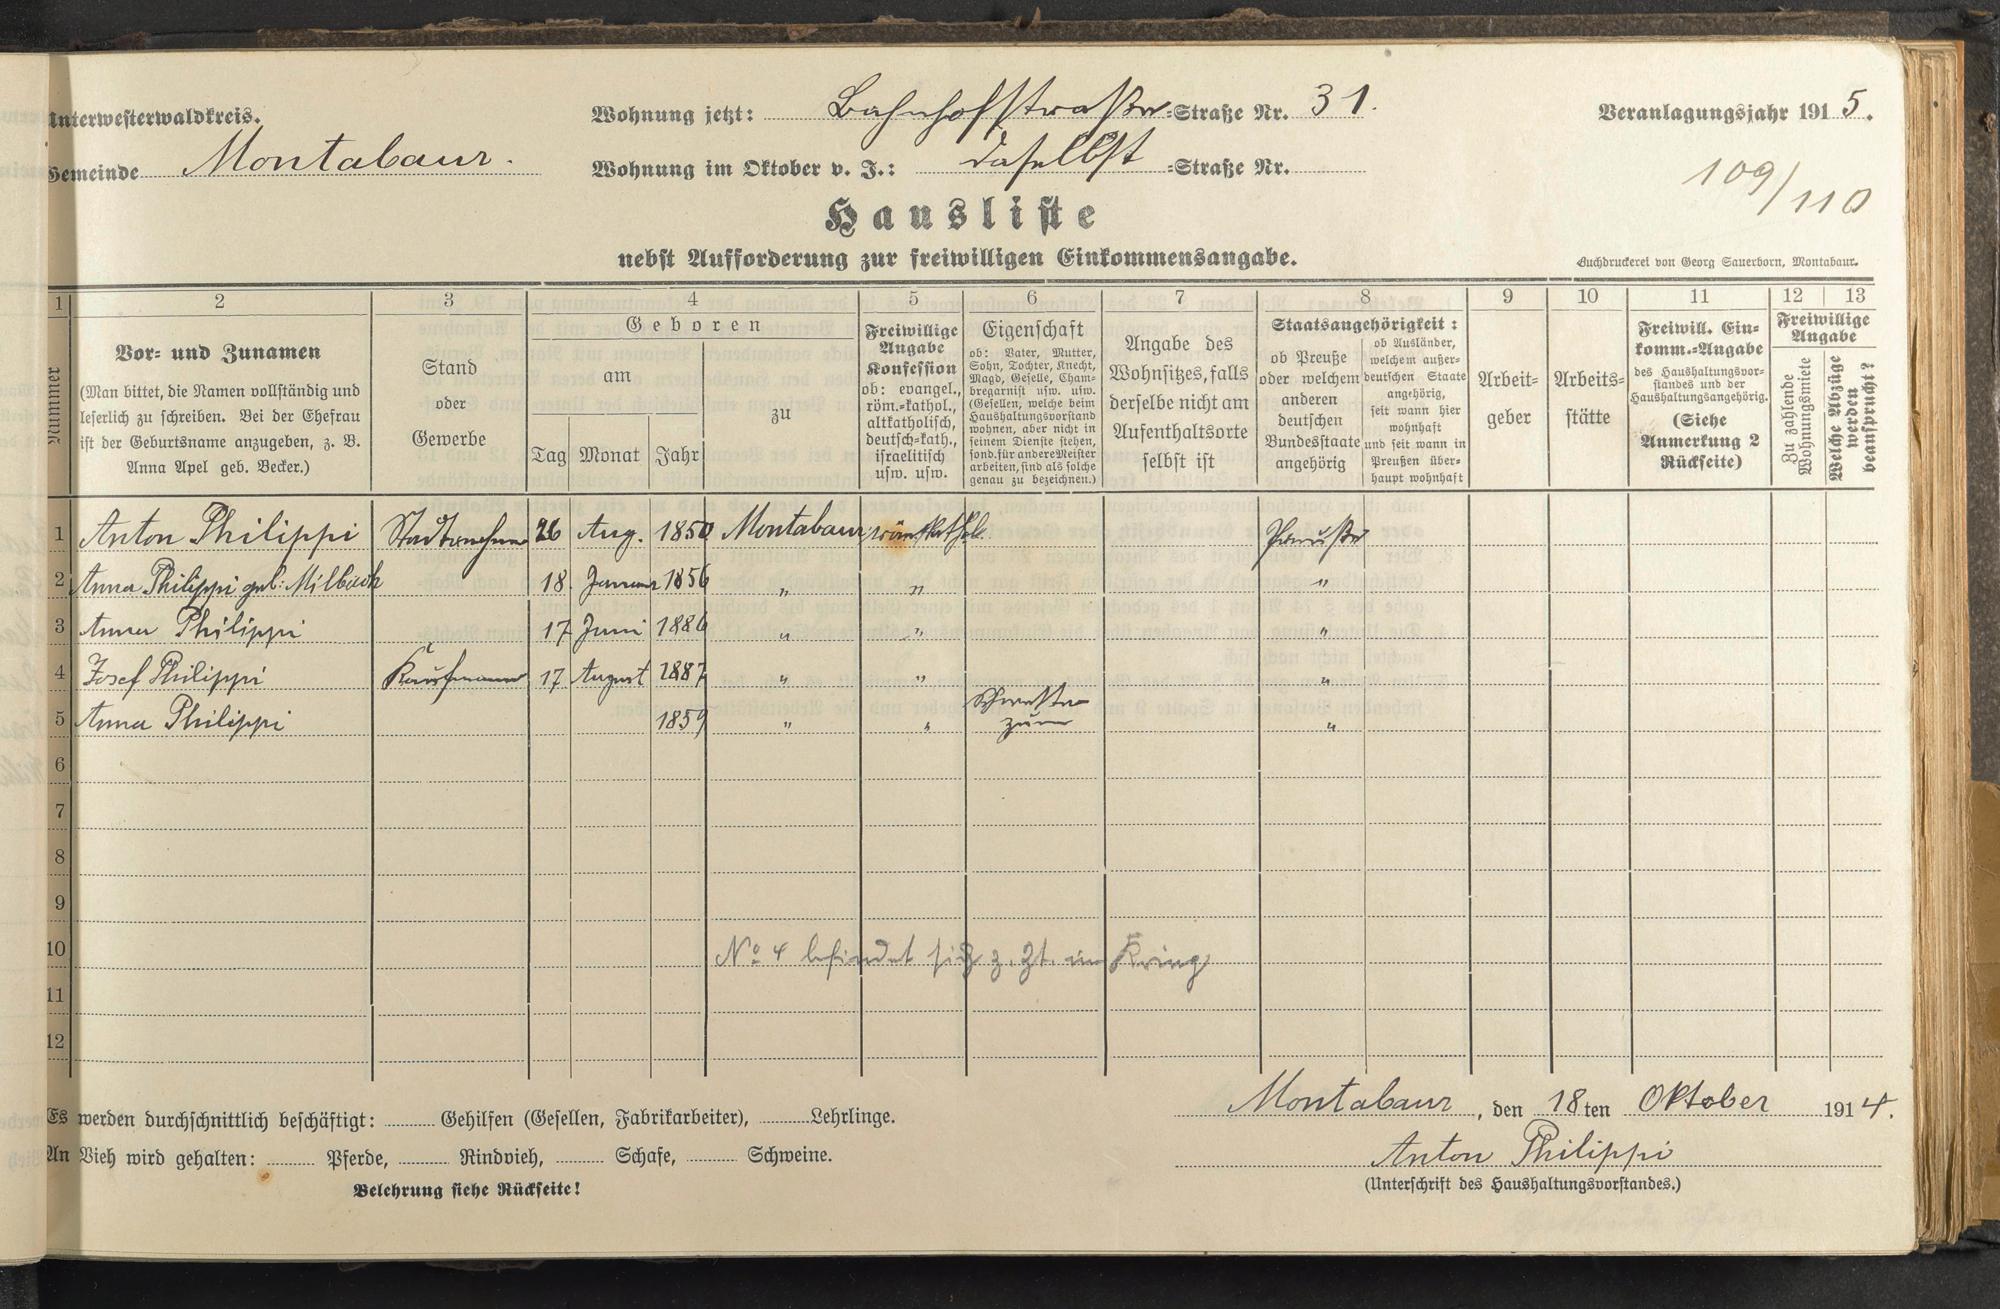 Unterwesterwaldkreis.
Wohnung jetzt: Bahnhofstraße-Straße Nr. 31.
Veranlagungsjahr 1915.
Gemeinde Montabaur.
Wohnung im Oktober v. J.: daselbst-Straße Nr.
109/110
Hausliste
nebst Aufforderung zur freiwilligen Einkommensangabe.
Buchdruckerei von Georg Sauerborn, Montabaur.
1 2 3 4 5 6 7 8 9 10 11 12 13
Nummer
Vor- und Zunamen
(Man bittet, die Namen vollständig und
leserlich zu schreiben. Bei der Ehefrau
ist der Geburtsname anzugeben, z. B.
Anna Apel geb. Becker.)
Stand
oder
Gewerbe
Geboren
am
Tag Monat Jahr
zu
Freiwillige
Angabe
Konfession
ob: evangel.,
röm.-kathol.,
altkatholisch,
deutsch-kath.,
israelitisch
usw. usw.
Eigenschaft
ob: Vater, Mutter,
Sohn, Tochter, Knecht,
Magd, Geselle, Cham-
bregarnist usw. usw.
(Gesellen, welche beim
Haushaltungsvorstand
wohnen, aber nicht in
seinem Dienste stehen,
sond. für andere Meister
arbeiten, sind als solche
genau zu bezeichnen.)
Angabe des
Wohnsitzes, falls
derselbe nicht am
Aufenthaltsorte
selbst ist
Staatsangehörigkeit:
ob Preuße
oder welchem
anderen
deutschen
Bundesstaate
angehörig
ob Ausländer,
welchem außer-
deutschen Staate
angehörig,
seit wann hier
wohnhaft
und seit wann in
Preußen über-
haupt wohnhaft
Arbeit-
geber
Arbeits-
stätte
Freiwill. Ein-
komm.-Angabe
des Haushaltungsvor-
standes und der
Haushaltungsangehörig.
(Siehe
Anmerkung 2
Rückseite)
Freiwillige
Angabe
Zu zahlende
Wohnungsmiete
Welche Abzüge
werden
beansprucht?
1 Anton Philippi 26 Aug. 1850 Montabaur röm. kathol. Preuße
2 Anna Philippi geb: Milbach 18. Januar 1856 " " "
3 Anna Philippi 17 Juni 1886 " " "
4 Josef Philippi Kaufmann 17 August 1887 " " "
5 Anna Philippi 1859 " " Schwester zu "
6
7
8
9
10 No 4 befindet sich z. Zt. im Krieg
11
12
Es werden durchschnittlich beschäftigt: Gehilfen (Gesellen, Fabrikarbeiter), Lehrlinge.
Montabaur, den 18ten Oktober 1914.
An Vieh wird gehalten: Pferde, Rindvieh, Schafe, Schweine.
Anton Philippi
Belehrung siehe Rückseite!
(Unterschrift des Haushaltungsvorstandes.)